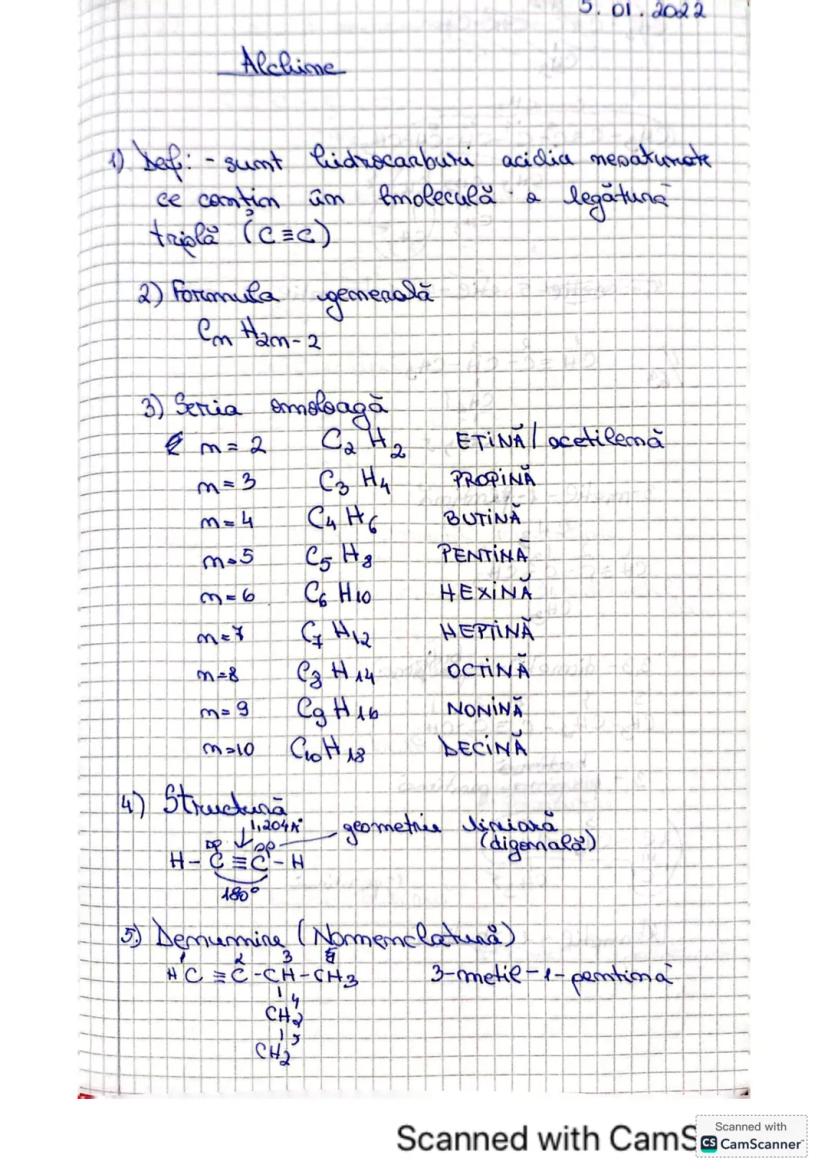 5.01.2022
Alchine
1) Def: - sunt hidrocarburi acidia nesaturate
ce conțin în moleculă o legătură
triplă (C≡C)
2) Formula generală
CnH2n-2
3) Seria omoloagă
n=2 C2H2 ETINĂ/acetilenă
n=3 C3H4 PROPINĂ
n=4 C4H6 BUTINĂ
n=5 C5H8 PENTINĂ
n=6 C6H10 HEXINĂ
n=7 C7H12 HEPTINĂ
n=8 C8H14 OCTINĂ
n=9 C9H16 NONINĂ
n=10 C10H18 DECINĂ
4) Structură
1,204A° geometrie liniară
sp sp (digonală)
H-C≡C-H
180°
5) Denumire (Nomenclatură)
1 2 3
HC≡C-CH-CH3 3-metil-1-pentină
4
CH2
5
CH2
Scanned with CamS
Scanned with
CS CamScanner